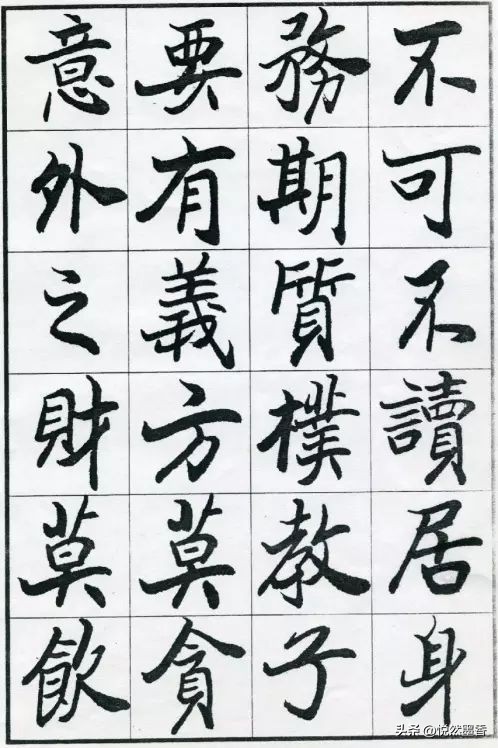 不可不讀居身
務期質樸教子
要有義方莫貪
意外之財莫飲
头条 @悦然墨香